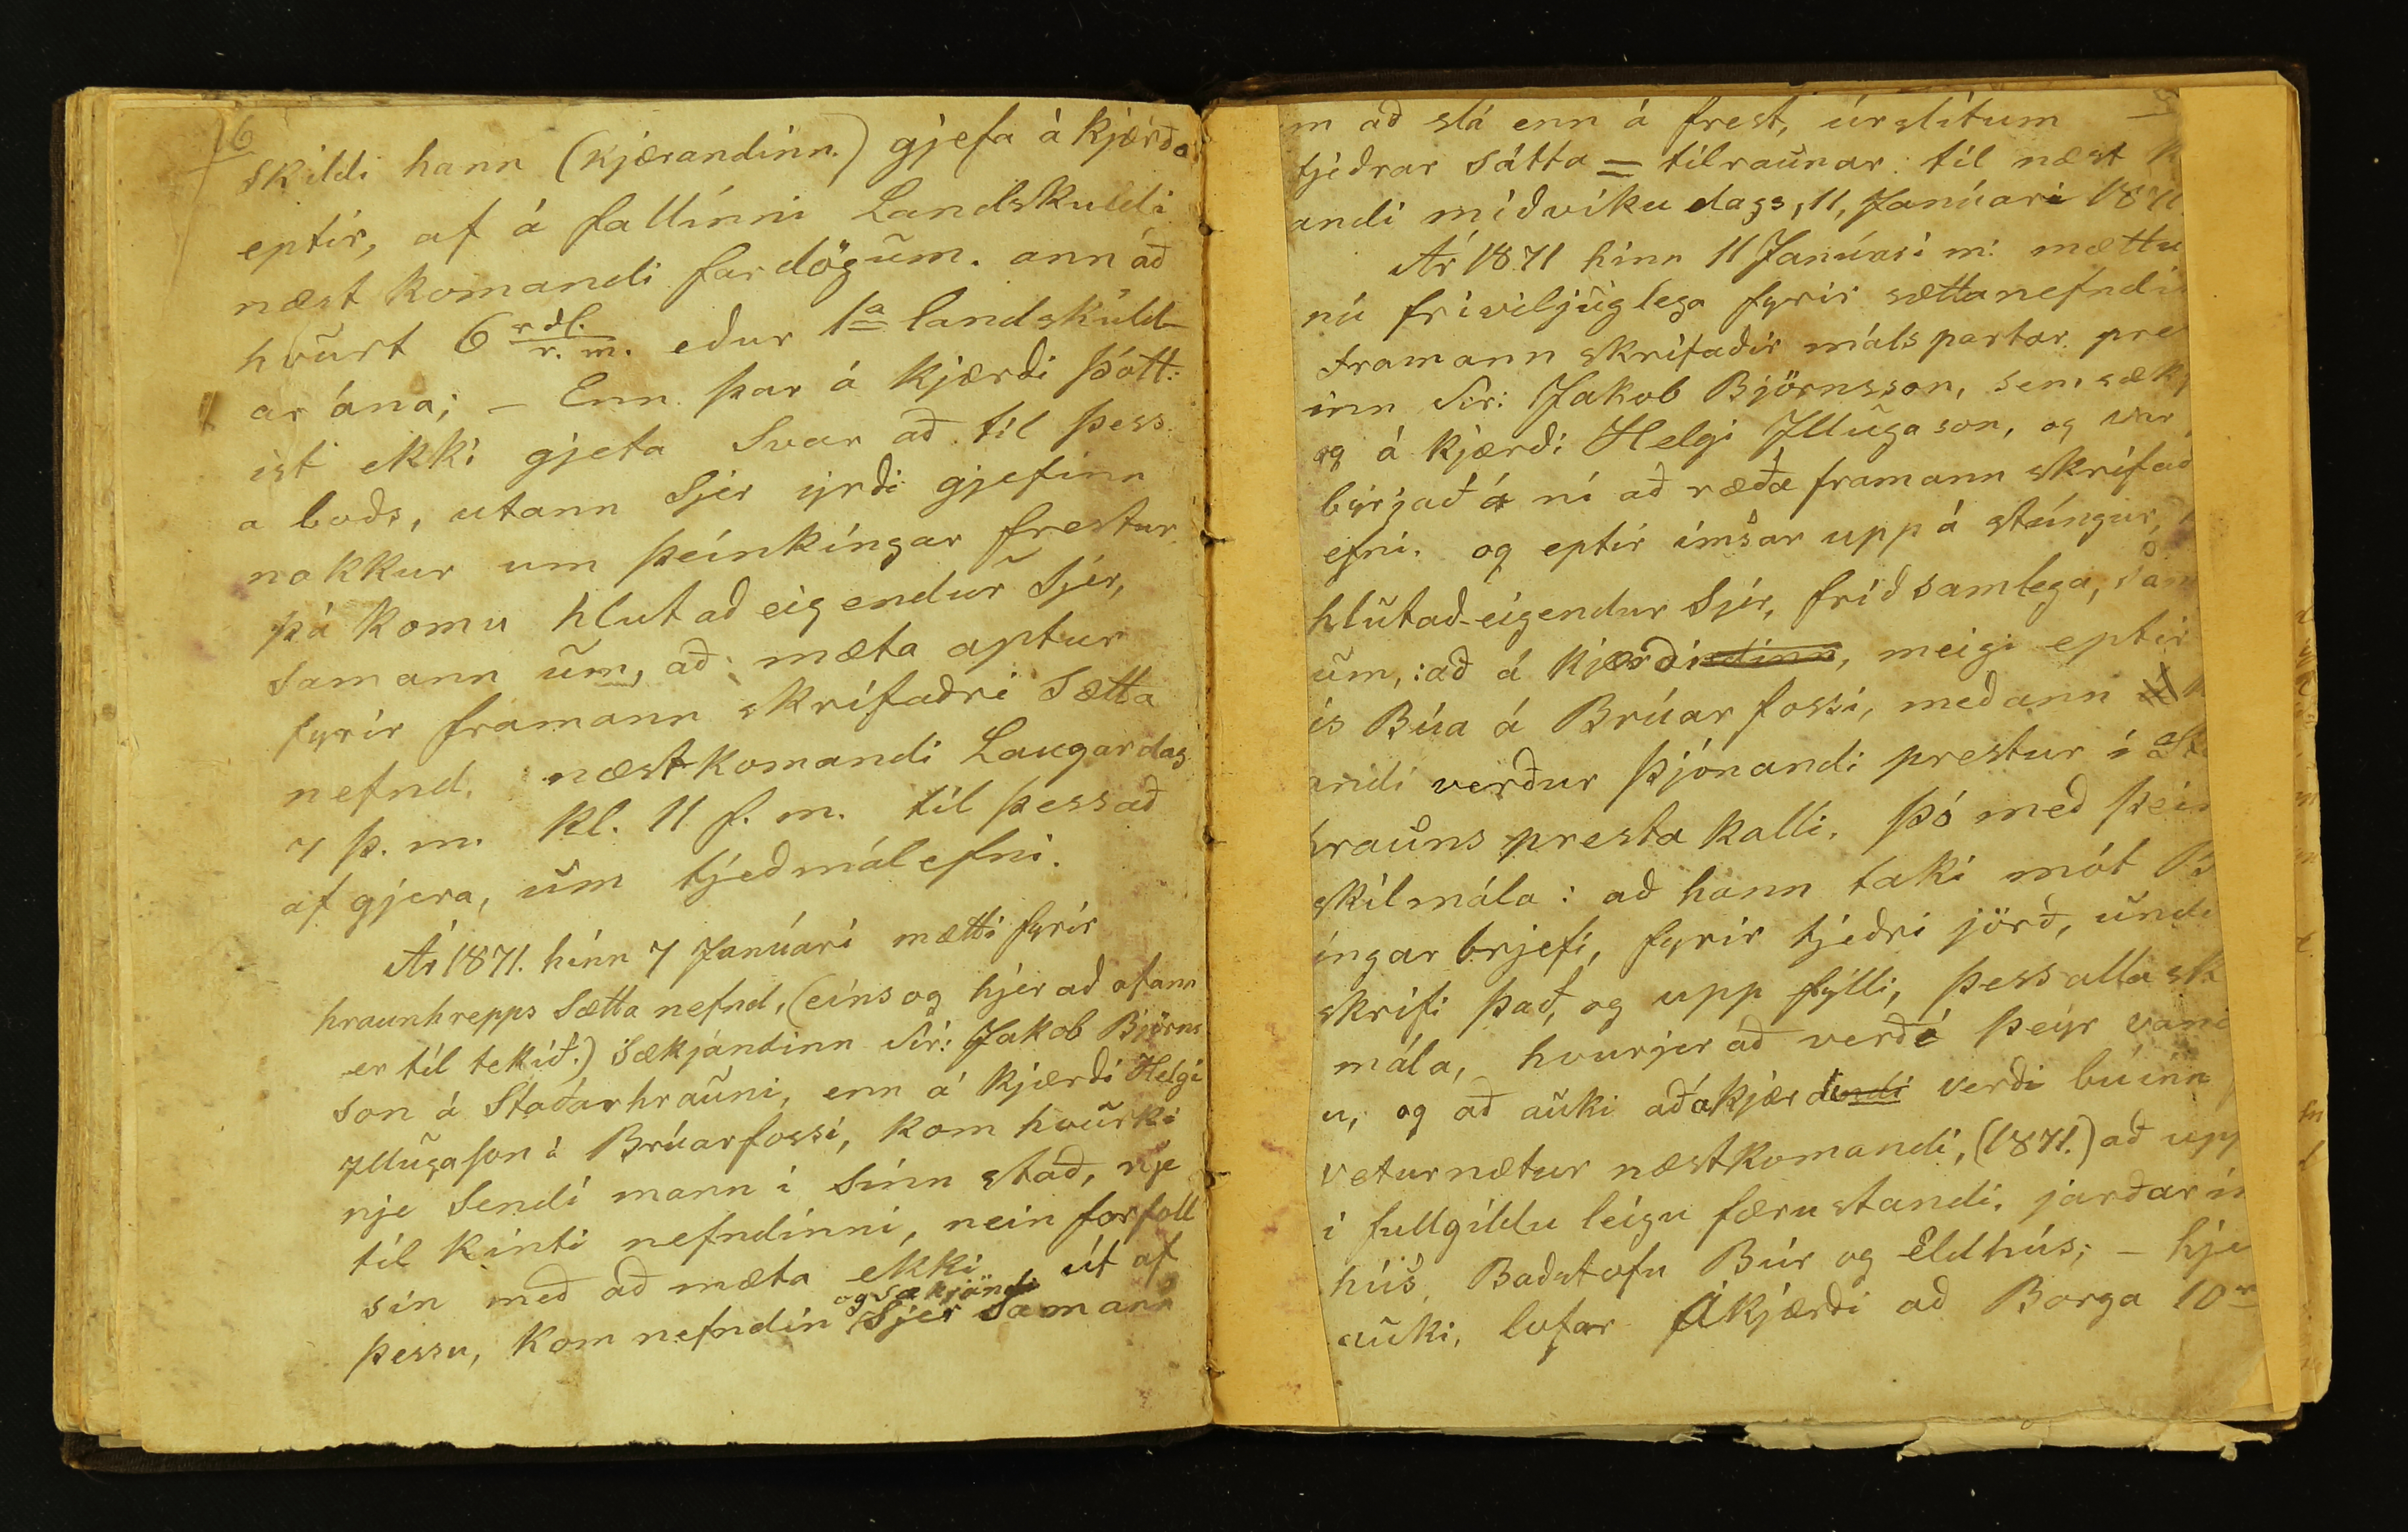 6
skildi hann (kjærandinn.) gjefa á kjærða
eptir, af á fallinni Landskuldi
næst komandi fardögum. ann að
hvurt 6 rdl. r. m. eður 1a landskuld-
ar ána; – Enn þar á kjærði þótt:
ist ekki gjeta svar að til þess
a boðs, utann Sjer yrði gjefinn
nokkur um þeinkingar frestur.
þá komu hlutað eigendur Sjer,
samann um, að mæta aptur
fyrir framann skrifaðri Sætta
nefnd. næstkomandi Laugardag
7 þ. m. kl. 11 f. m. til þess að
af gjera, um tjeð málefni.
Ár 1871. hinn 7 Janúari mætti fyrir
hraunhrepps Sætta nefnd, (eins og hjer að ofann
er til tekið.) Sækjandinn Sir: Jakob Björns
son á Staðarhrauni, enn á kjærði Helgi
Illugason á Brúarfossi, kom hvurki
nje Sendi mann i sinn stað, nje
til kinti nefndinni, nein forföll
sin með að mæta ekki út af
þessu, kom nefndin og sækjandi Sjer Samann
m að slá enn á frest, úrslitum
tjeðrar sátta = tilraunar til næst k
andi miðvikudags, 11, Janúari 1871.
Ár 1871 hinn 11 Janúari m: mættu
nú friviljuglega fyrir sættanefndi
framann skrifaðir málspartar pre
inn Sir: Jakob Björnsson, sem sækj
og á kjærði Helgi Illugason, og var
byrjað á ní að ræða framann skrifað
efni. og eptir imsar upp á stúngur,
hlutað-eigendur Sjer, friðsamlega, sam
um,: að á kjærðindinn, meigi eptir
is Búa á Brúarfossi, meðann
andi verður þjónandi prestur i St
hrauns prestakalli, þó með þeim
skilmála: að hann taki mót B
ingar brjefi, fyrir tjeðri jörð, und
skrifi það, og upp fylli, þess alla sk
mála, hvurjer að verði þeyr vani
u, og að auki að ákjærdindi verði búinn
veturnætur næstkomandi, (1871.) að upp
i fullgildu leigu færu standi, jarðar in
hús, Baðstofu Búr og Eldhús; – hje
auki, lofar Ákjærði að Borga 10 r